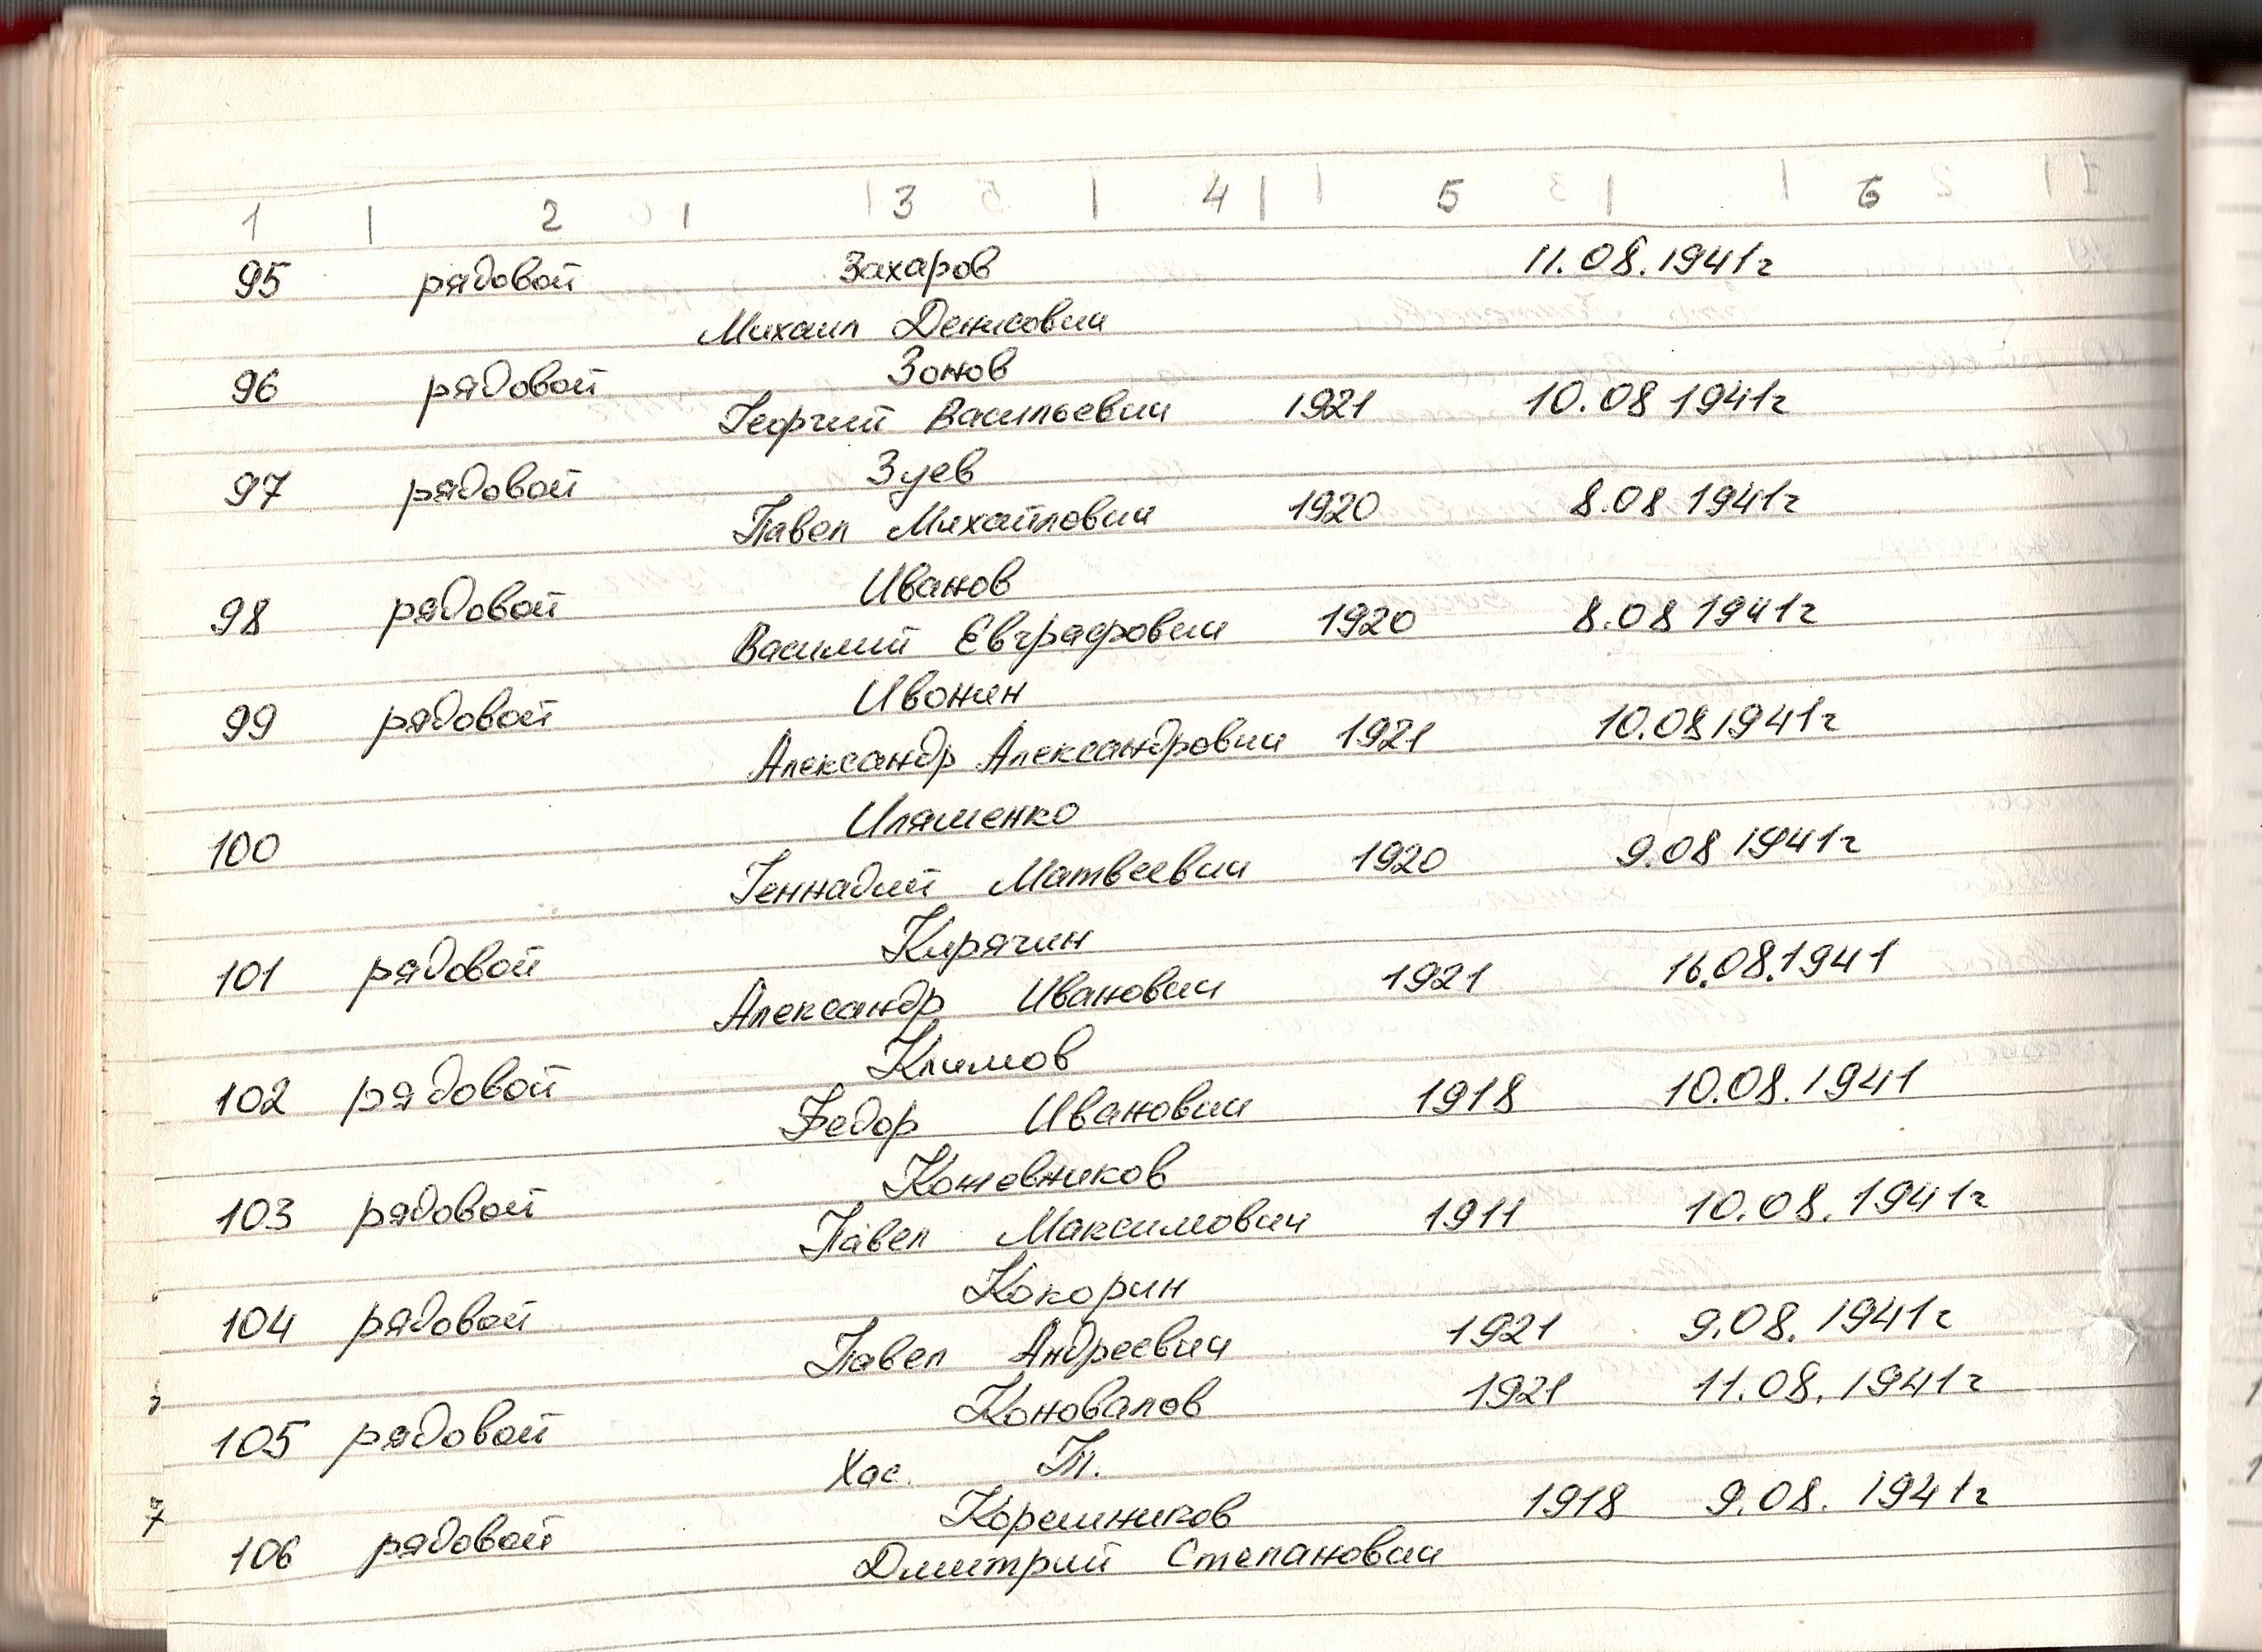 1 | 2 | 3 | 4 | 5 | 6
95 рядовой Захаров 11.08.1941г
Михаил Денисович
96 рядовой Зонов
Георгий Васильевич 1921 10.08 1941г
97 рядовой Зуев
Павел Михайлович 1920 8.08 1941г
98 рядовой Иванов
Василий Евграфович 1920 8.08 1941г
99 рядовой Ивонин
Александр Александрович 1921 10.08 1941г
100 Иляшенко
Геннадий Матвеевич 1920 9.08 1941г
101 рядовой Кирягин
Александр Иванович 1921 16.08.1941
102 рядовой Климов
Федор Иванович 1918 10.08.1941
103 рядовой Кожевников
Павел Максимович 1911 10.08.1941г
104 рядовой Кокорин
Павел Андреевич 1921 9.08.1941г
105 рядовой Коновалов 1921 11.08.1941г
Хас. Т.
106 рядовой 1918 9.08.1941г
Дмитрий Степанович